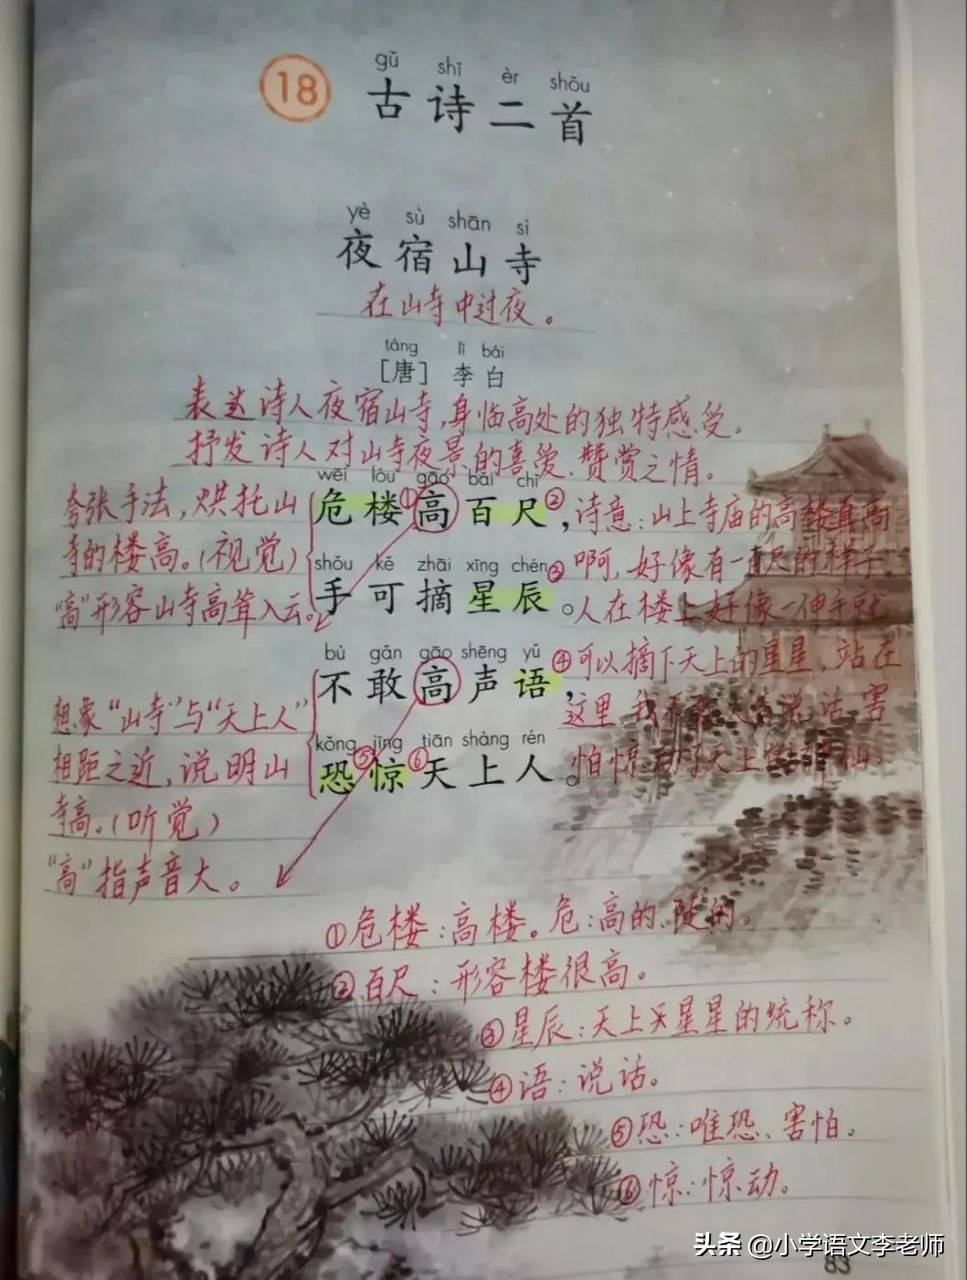 18
gǔ shī èr shǒu
古诗二首
yè sù shān sì
夜宿山寺
在山寺中过夜。
táng lǐ bái
[唐] 李白
表达诗人夜宿山寺,身临高处的独特感受。
抒发诗人对山寺夜景的喜爱、赞赏之情。
wēi lóu gāo bǎi chǐ
危楼①高百尺②,
shǒu kě zhāi xīng chén
手可摘星辰③。
bù gǎn gāo shēng yǔ
不敢高声语④,
kǒng jīng tiān shàng rén
恐⑤惊⑥天上人。
夸张手法,烘托山
寺的楼高。(视觉)
"高"形容山寺高耸入云。
想象"山寺"与"天上人"
相距之近,说明山
寺高。(听觉)
"高"指声音大。
诗意:山上寺庙的高楼真高
啊,好像有一百尺的样子。
人在楼上好像一伸手就
可以摘下天上的星星,站在
这里 我不 说话 害
怕惊动了天上
①危楼:高楼。危:高的、陡的。
②百尺:形容楼很高。
③星辰:天上星星的统称。
④语:说话。
⑤恐:唯恐、害怕。
⑥惊:惊动。
头条 @小学语文李老师
83